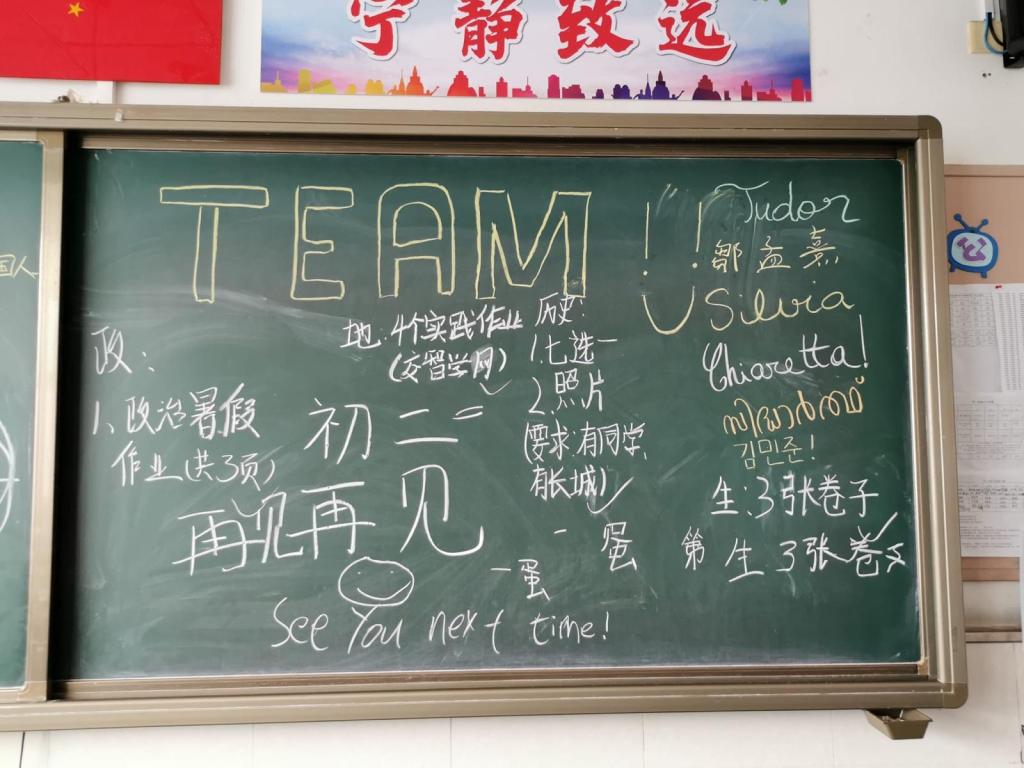 宁静致远
国人
TEAM!!
Tudor
邹孟熹
Silvia
Chiaretta!
김민준!
生:3张卷子
第 生 3张卷
政:
1.政治暑假
作业(共3页)
地:4个实践作业
(交智学网)
历史:
1.七选一
2.照片
(要求:有同学,
有长城)
初二
再见再见
一蛋
一蛋
See You next time!